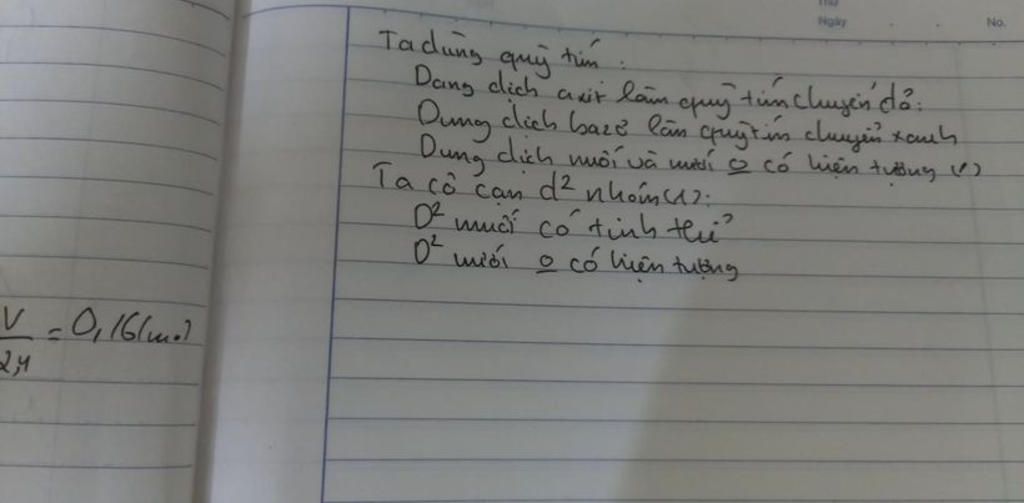 Thứ
Ngày . . No.
Ta dùng quỳ tím :
Dang dịch axit làm quỳ tím chuyển đỏ.
Dung dịch bazơ làm quỳ tím chuyển xanh
Dung dịch muối và nước o có hiện tượng (1)
Ta cô cạn d² nhóm (1):
D² muối có tinh thể
D² nước o có hiện tượng
V/2,4 = 0,16(mo)